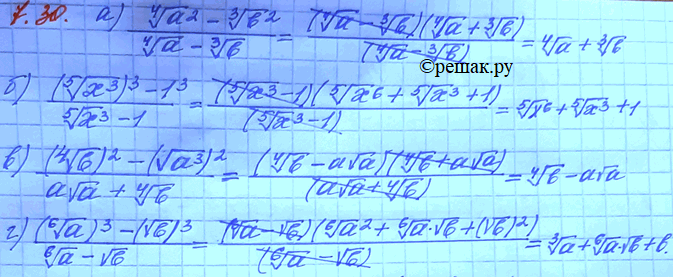 7.30. а) (∜a² - ∛b²)/(∜a - ∛b) = ((∜a - ∛b)(∜a + ∛b))/((∜a - ∛b)) = ∜a + ∛b
©решак.ру
б) ((⁵√x³)³ - 1³)/(⁵√x³ - 1) = ((⁵√x³ - 1)(⁵√x⁶ + ⁵√x³ + 1))/((⁵√x³ - 1)) = ⁵√x⁶ + ⁵√x³ + 1
в) ((∜b)² - (√a³)²)/(a√a + ∜b) = ((∜b - a√a)(∜b + a√a))/((a√a + ∜b)) = ∜b - a√a
г) ((⁶√a)³ - (√b)³)/(⁶√a - √b) = ((⁶√a - √b)(⁶√a² + ⁶√a·√b + (√b)²))/((⁶√a - √b)) = ∛a + ⁶√a·√b + b.